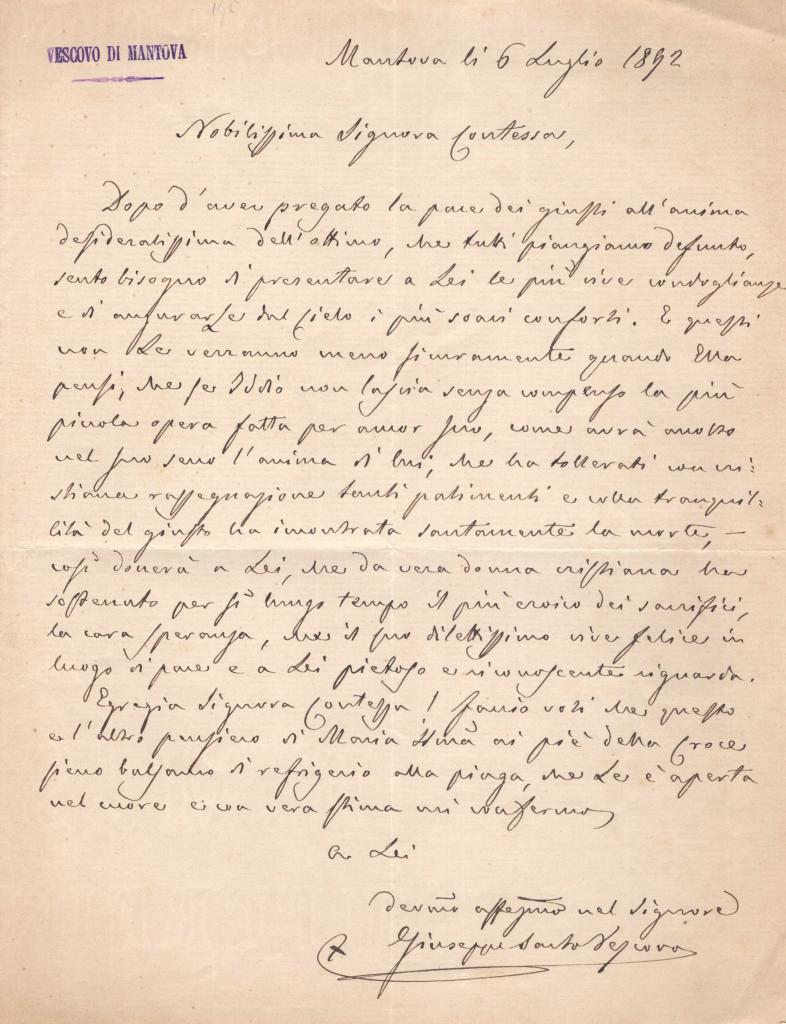 VESCOVO DI MANTOVA
Mantova li 6 Luglio 1892
Nobilissima Signora Contessa,
Dopo d'aver pregato la pace dei giusti all'anima
desideratissima dell'ottimo, che tutti piangiamo defunto,
sento bisogno di presentare a Lei le più vive condoglianze
e di augurarLe dal Cielo i più soavi conforti. E questi
non Le verranno meno sicuramente quando Ella
pensi, che se Iddio non lascia senza compenso la più
piccola opera fatta per amor suo, come avrà accolto
nel suo seno l'anima di lui, che ha tollerati con cri=
stiana rassegnazione tanti patimenti e colla tranquil=
lità del giusto ha incontrata santamente la morte, —
così donerà a Lei, che da vera donna cristiana ha
sostenuto per sì lungo tempo il più eroico dei sacrifici,
la cara speranza, che il suo dilettissimo vive felice in
luogo di pace e a Lei pietoso e riconoscente riguarda.
Egregia Signora Contessa! faccio voti che questo
e l'altro pensiero di Maria SSma ai piè della Croce
sieno balsamo di refrigerio alla piaga, che Le è aperta
nel cuore e con vera stima mi confermo
a Lei
devmo affezmo nel Signore
+ Giuseppe Sarto Vescovo